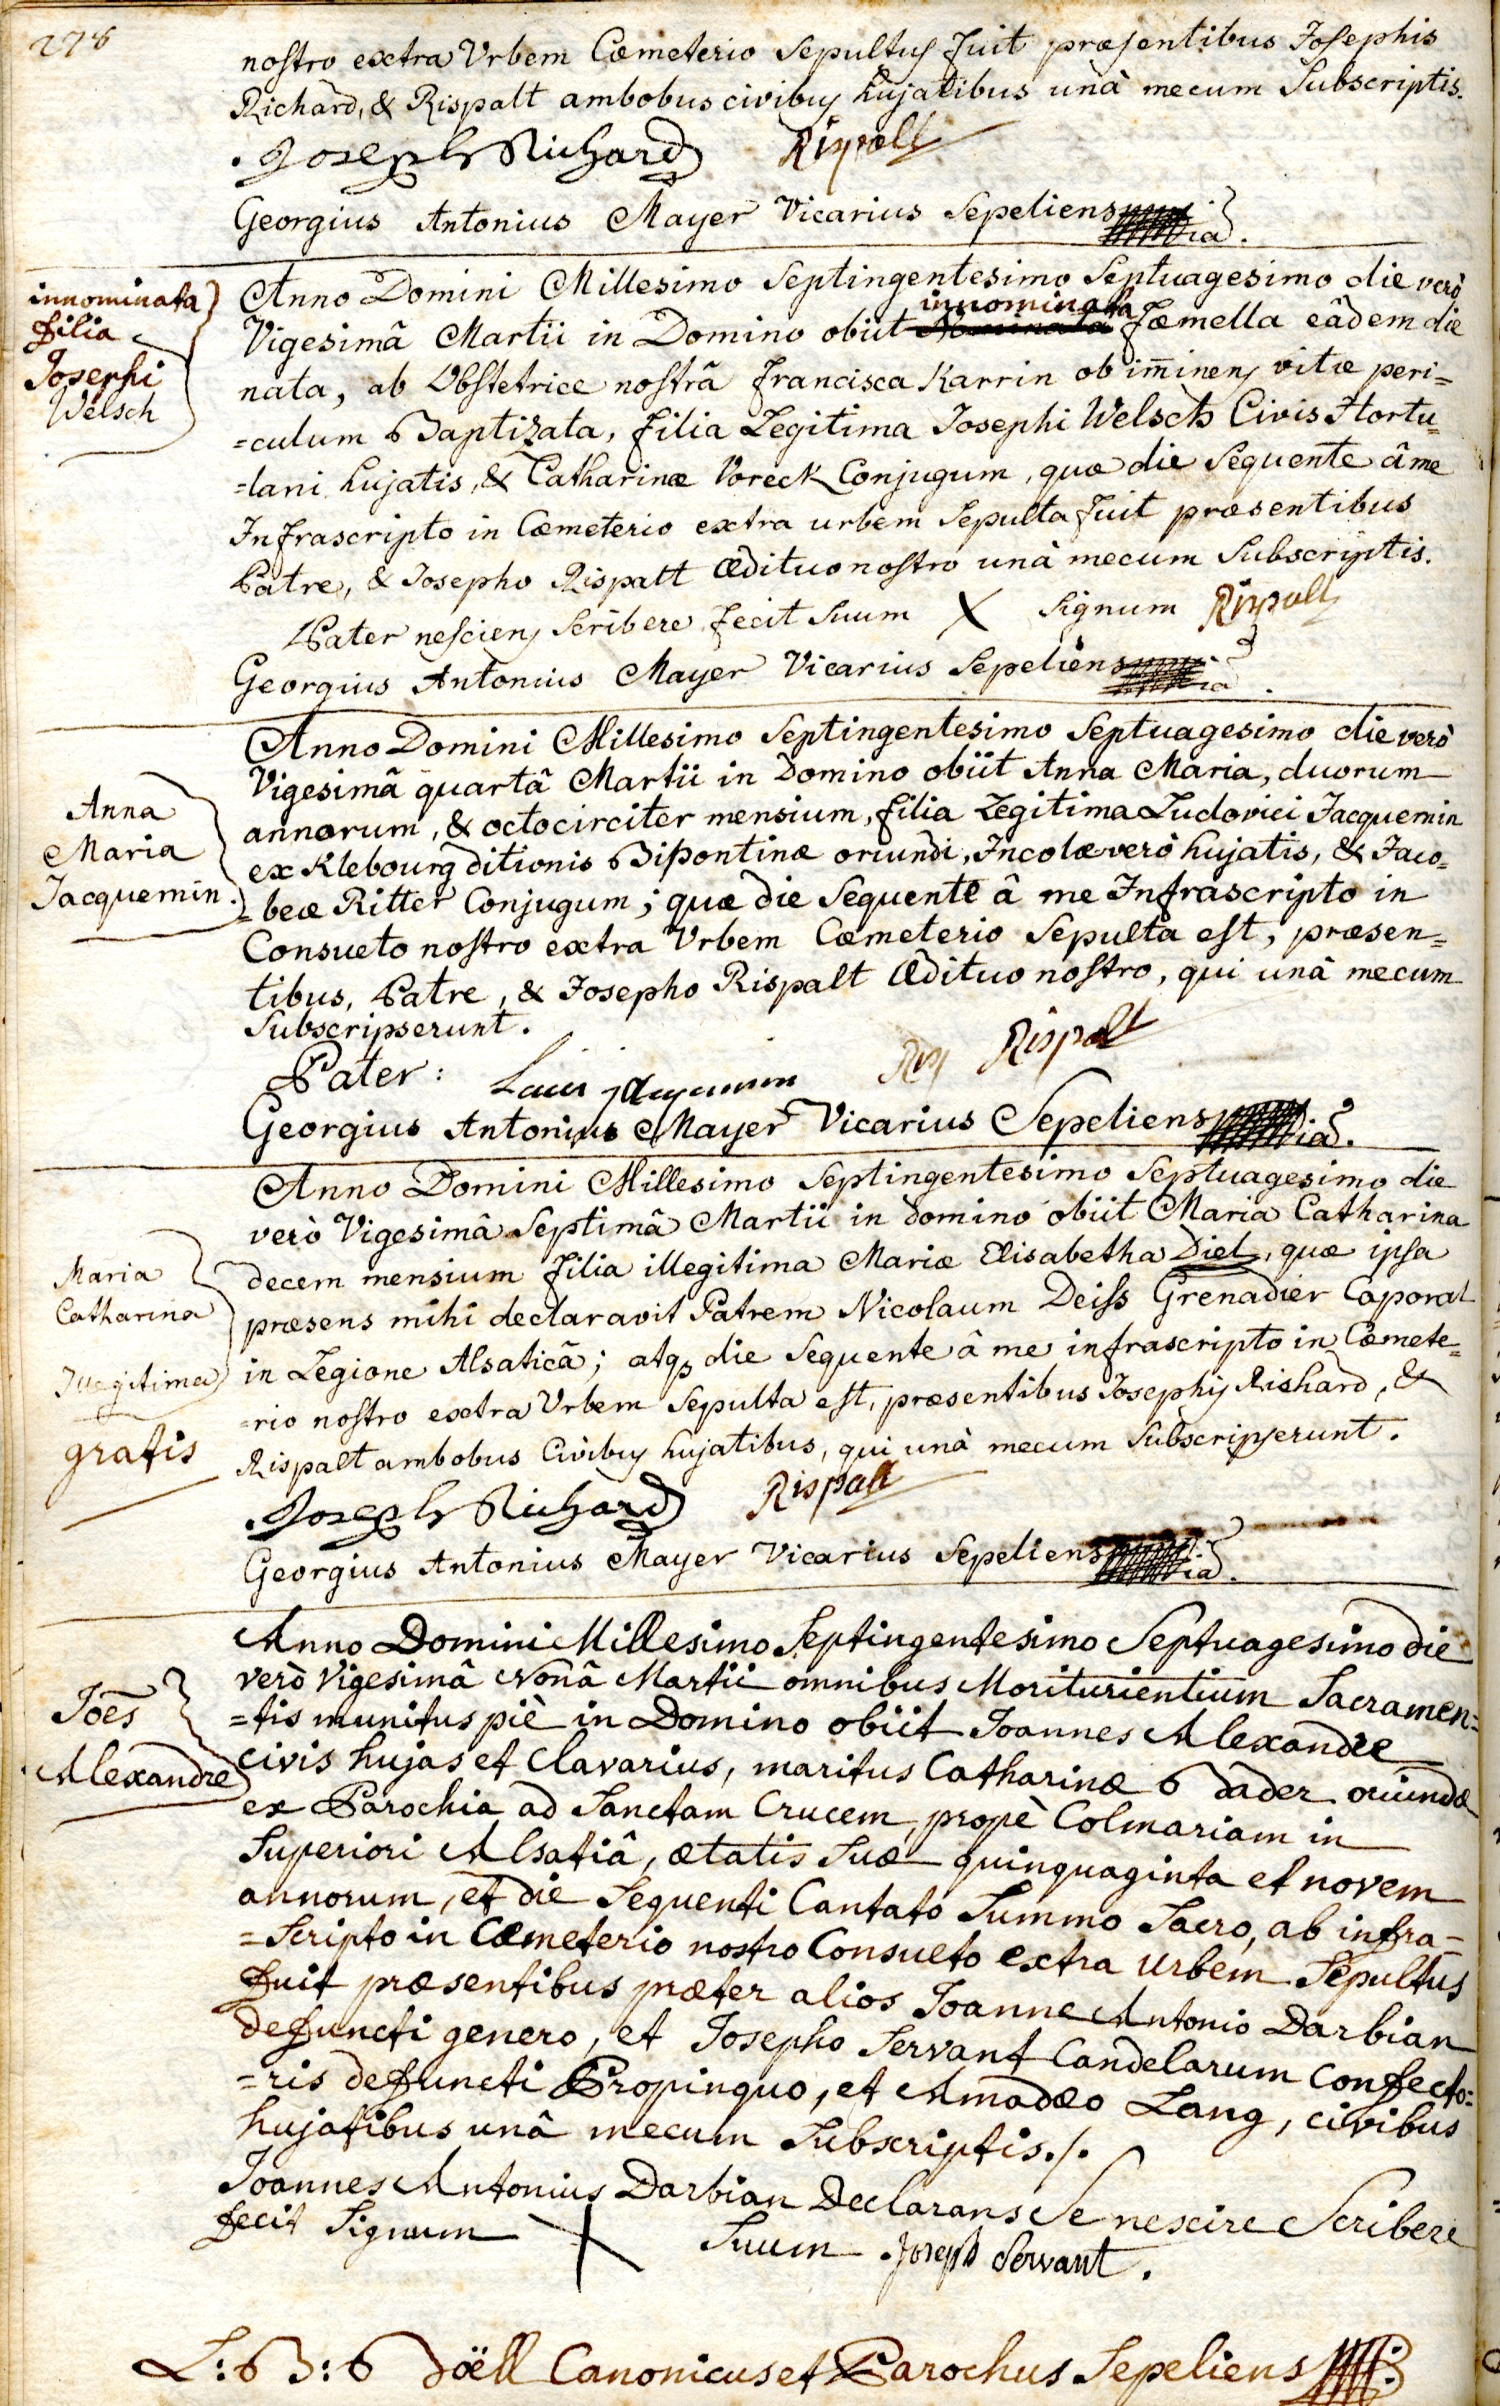 278
nostro extra Urbem Cœmeterio Sepultus fuit præsentibus Josephis
Richard, & Rispalt ambobus civibus hujatibus unà mecum Subscriptis.
Joseph Richard Rispalt
Georgius Antonius Mayer Vicarius Sepeliens
innominata
filia
Josephi
Welsch
Anno Domini Millesimo Septingentesimo Septuagesimo die verò
Vigesimâ Martii in Domino obiit innominata Fæmella eâdem die
nata, ab Obstetrice nostrâ Francisca Karrin ob im̄inens vitæ peri=
=culum Baptizata, filia Legitima Josephi Welsch Civis Hortu=
=lani hujatis, & Catharinæ Voreck Conjugum, quæ die Sequente â me
Infrascripto in Cœmeterio extra urbem Sepulta fuit præsentibus
Patre, & Josepho Rispalt Ædituo nostro unà mecum Subscriptis.
Pater nesciens Scribere fecit Suum X Signum Rispalt
Georgius Antonius Mayer Vicarius Sepeliens
Anna
Maria
Jacquemin.
Anno Domini Millesimo Septingentesimo Septuagesimo die verò
Vigesimâ quartâ Martii in Domino obiit Anna Maria, duorum
annorum, & octo circiter mensium, filia Legitima Ludovici Jacquemin
ex Klebourg ditionis Bipontinæ oriundi, Incolæ verò hujatis, & Jaco=
=beæ Ritter Conjugum; quæ die Sequente â me Infrascripto in
Consueto nostro extra Urbem Cœmeterio Sepulta est, præsen=
tibus, Patre, & Josepho Rispalt Ædituo nostro, qui unà mecum
Subscripserunt.
Pater: Rispalt
Georgius Antonius Mayer Vicarius Sepeliens
Maria
Catharina
Illegitima
gratis
Anno Domini Millesimo Septingentesimo Septuagesimo die
verò Vigesimâ Septimâ Martii in domino obiit Maria Catharina
decem mensium filia illegitima Mariæ Elisabetha Diel, quæ ipsa
præsens mihi declaravit Patrem Nicolaum Deiss Grenadier Caporal
in Legione Alsaticâ; atq, die Sequente â me infrascripto in Cœmete=
=rio nostro extra Urbem Sepulta est, præsentibus Josephis Rishard, &
Rispalt ambobus Civibus hujatibus, qui unà mecum Subscripserunt.
Joseph Richard Rispalt
Georgius Antonius Mayer Vicarius Sepeliens
Joēs
Alexandre
Anno Domini Millesimo Septingentesimo Septuagesimo die
verò Vigesimâ Nonâ Martii omnibus Moriturientium Sacramen=
=tis munitus piè in Domino obiit Joannes Alexandre
civis hujas et Clavarius, maritus Catharinæ Bader oriundæ
ex Parochia ad Sanctam Crucem, propè Colmariam in
Superiori Alsatiâ, ætatis Suæ quinquaginta et novem
annorum, et die Sequenti Cantato Summo Sacro, ab infra=
=Scripto in Cœmeterio nostro Consueto extra Urbem Sepultus
fuit præsentibus præter alios Joanne Antonio Darbian
defuncti genero, et Josepho Servant Candelarum Confecto=
=ris defuncti Propinquo, et Amadæo Lang, civibus
hujatibus unâ mecum Subscriptis./.
Joannes Antonius Darbian Declarans Se nescire Scribere
fecit Signum X Suum Joseph Servant.
L: B: Böell Canonicus et Parochus Sepeliens